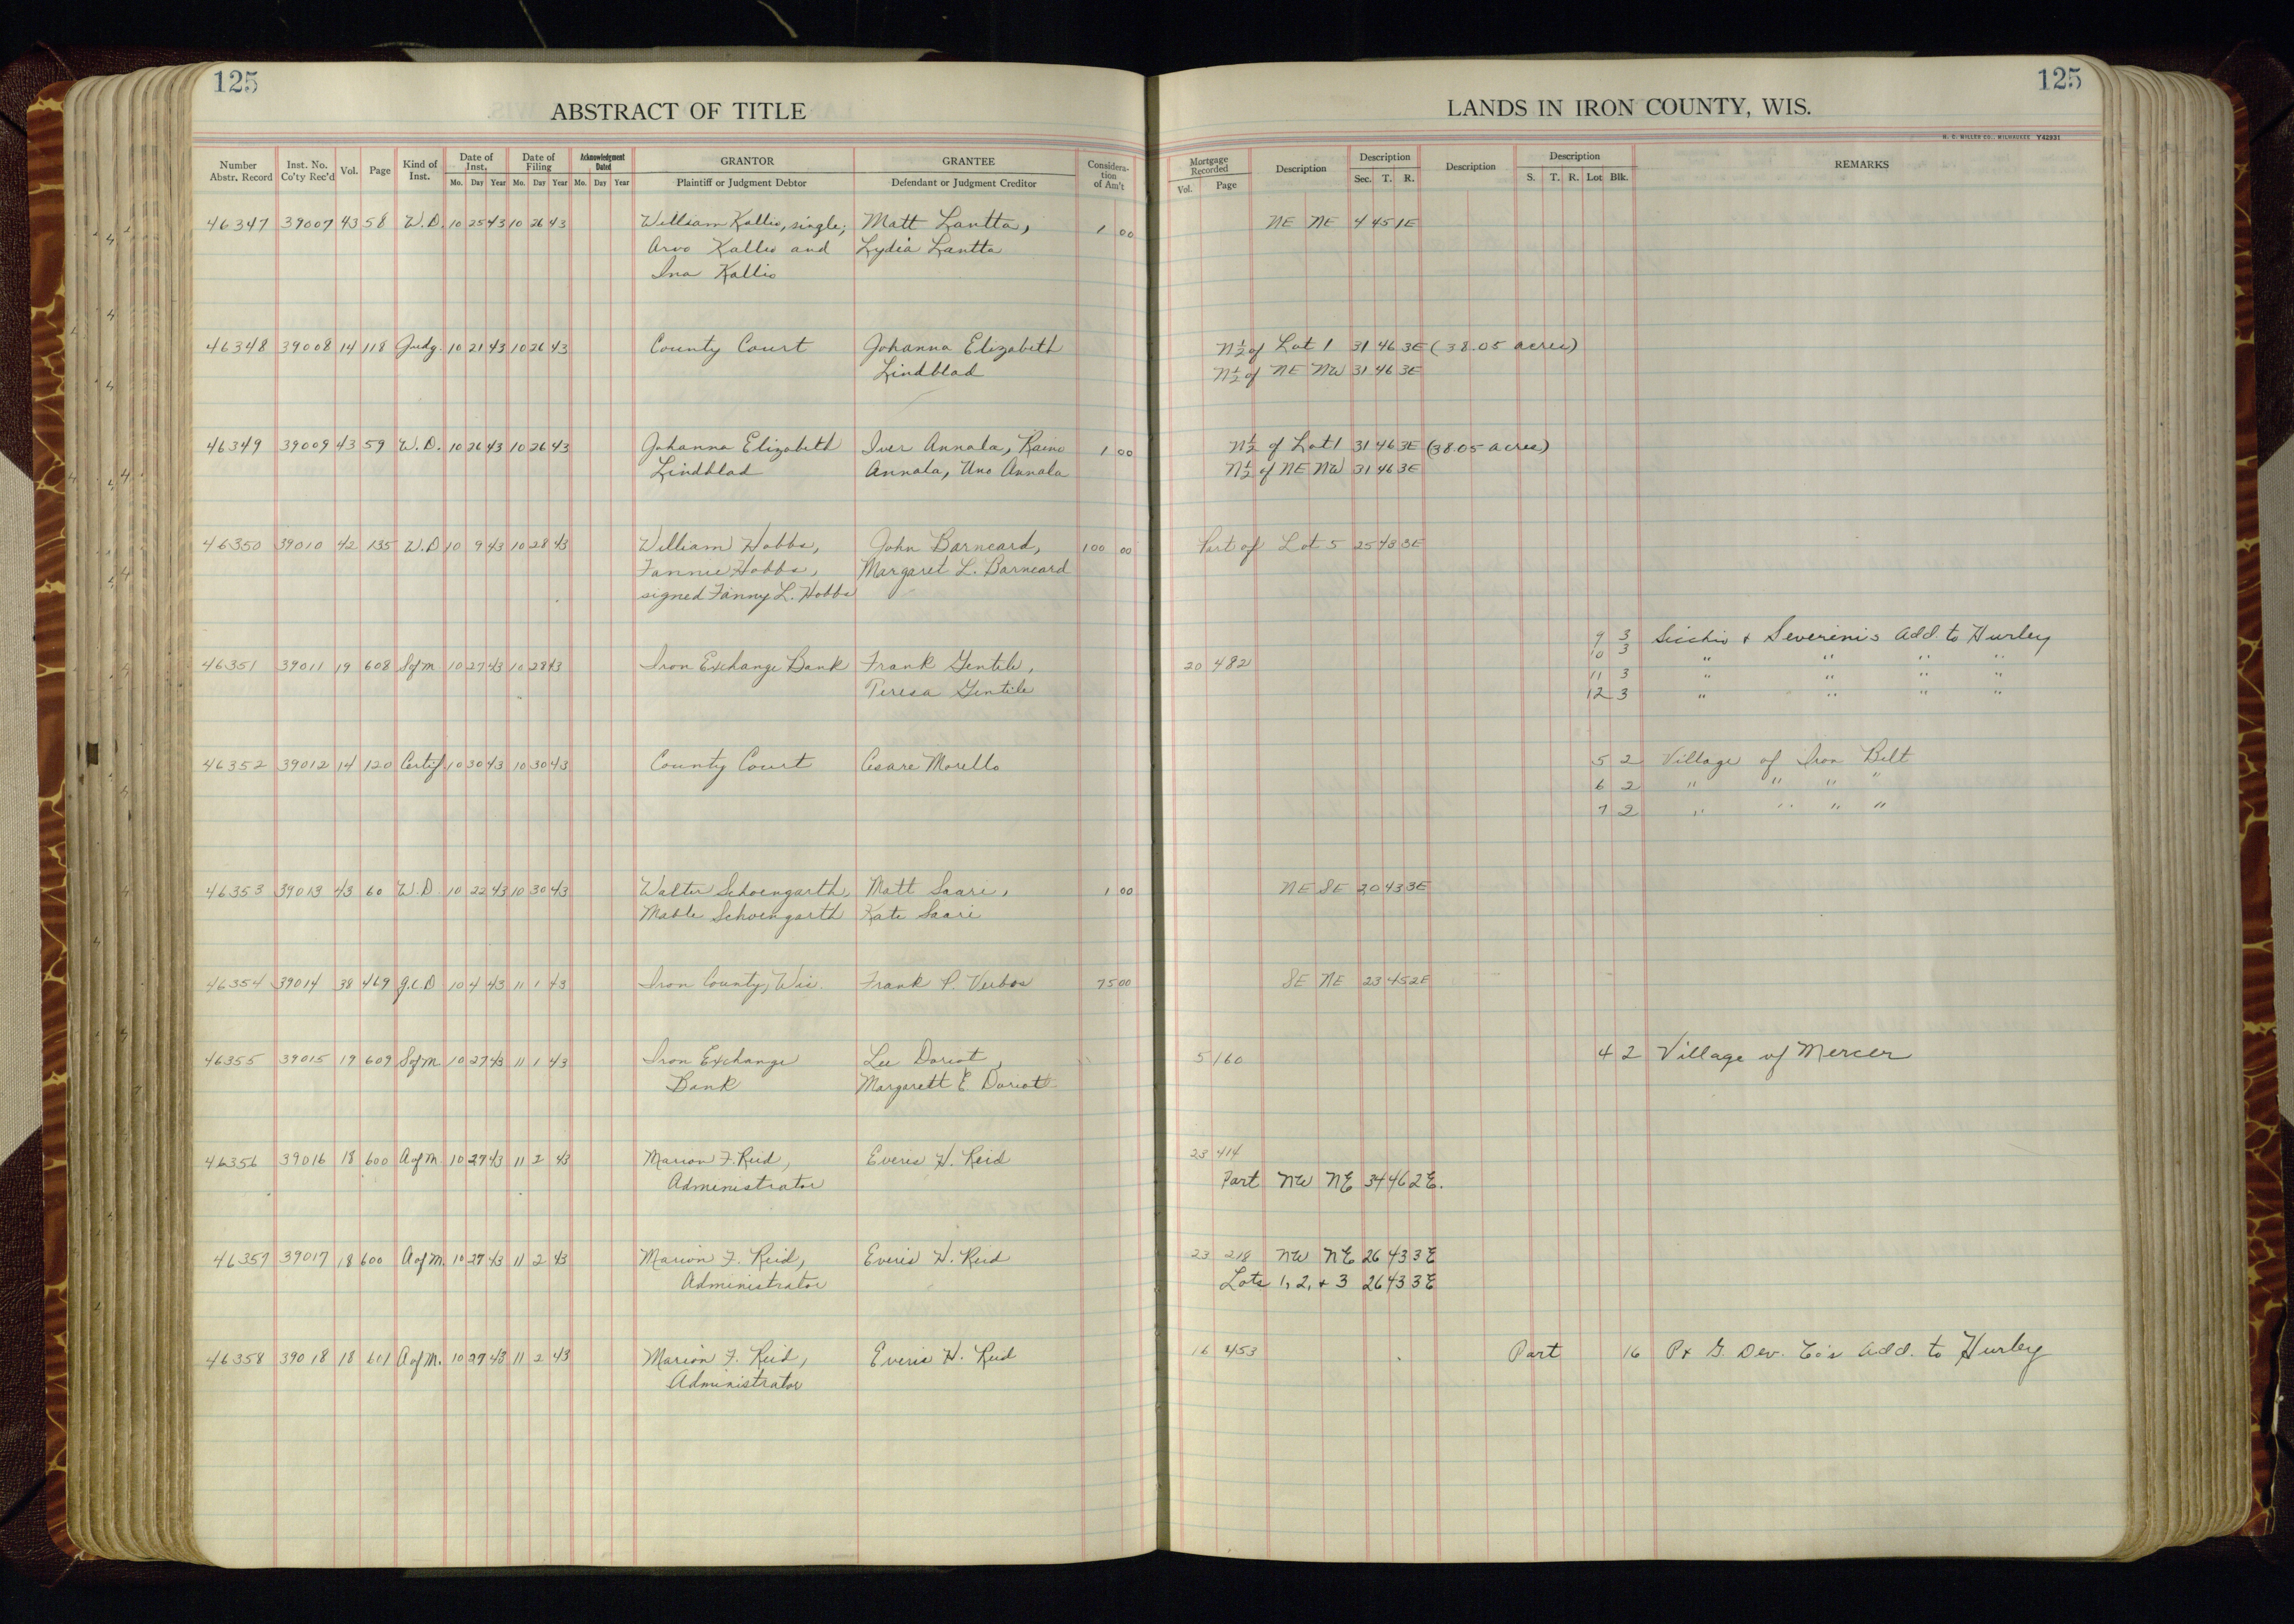 125
125
ABSTRACT OF TITLE
LANDS IN IRON COUNTY, WIS.
H. C. MILLER CO., MILWAUKEE Y42931
Number Abstr. Record Inst. No. Co'ty Rec'd Vol. Page Kind of Inst. Date of Inst. Mo. Day Year Date of Filing Mo. Day Year Acknowledgment Dated Mo. Day Year GRANTOR Plaintiff or Judgment Debtor GRANTEE Defendant or Judgment Creditor Considera-tion of Am't Mortgage Recorded Vol. Page Description Description Sec. T. R. Description Description S. T. R. Lot Blk. REMARKS
46347 39007 43 58 W.D. 10 25 43 10 26 43 William Kallio, single; Matt Lantta, 1 00 NE NE 4 45 1E
Arvo Kallio and Lydia Lantta
Ina Kallio
46348 39008 14 118 Judg. 10 21 43 10 26 43 County Court Johanna Elizabeth N½ of Lot 1 31 46 3E (38.05 acres)
Lindblad N½ of NE NW 31 46 3E
46349 39009 43 59 W.D. 10 26 43 10 26 43 Johanna Elizabeth Iver Annala, Raino 1 00 N½ of Lot 1 31 46 3E (38.05 acres)
Lindblad Annala, Uno Annala N½ of NE NW 31 46 3E
46350 39010 42 135 W.D 10 9 43 10 28 43 William Hobbs, John Barneard, 100 00 Part of Lot 5 25 43 3E
Fannie Hobbs, Margaret L. Barneard
signed Fanny L. Hobbs
9 3 Sicchio & Severini's Add. to Hurley
10 3 " " " "
46351 39011 19 608 Sofm 10 27 43 10 28 43 Iron Exchange Bank Frank Gentile, 20 482 11 3 " " " "
Teresa Gentile 12 3 " " " "
46352 39012 14 120 Certif 10 30 43 10 30 43 County Court Cesare Morello 5 2 Village of Iron Belt
6 2 " " " "
7 2 " " " "
46353 39013 43 60 W.D 10 22 43 10 30 43 Walter Schoengarth, Matt Saari, 1 00 NE SE 20 43 3E
Mable Schoengarth Kate Saari
46354 39014 38 469 Q.C.D 10 4 43 11 1 43 Iron County, Wis. Frank P. Verbos 75 00 SE NE 23 45 2E
46355 39015 19 609 Sofm 10 27 43 11 1 43 Iron Exchange Lee Doriot, 5 160 4 2 Village of Mercer
Bank Margarett E. Doriot
46356 39016 18 600 A of m. 10 27 43 11 2 43 Marion F. Reid, Everis H. Reid 23 414
Administrator Part NW NE 34 46 2E.
46357 39017 18 600 A of m. 10 27 43 11 2 43 Marion F. Reid, Everis H. Reid 23 218 NW NE 26 43 3E
Administrator Lots 1, 2, & 3 26 43 3E
46358 39018 18 601 A of m. 10 27 43 11 2 43 Marion F. Reid, Everis H. Reid 16 453 Part 16 P & G. Dev. Co's Add. to Hurley
Administrator